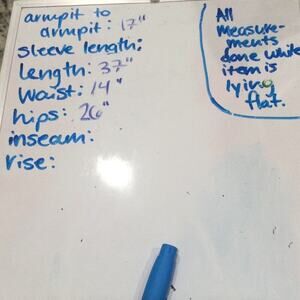 armpit to
armpit: 17"
sleeve length:
length: 37"
Waist: 14"
hips: 26"
inseam:
rise:
All
measure-
ments
done while
item is
lying
flat.